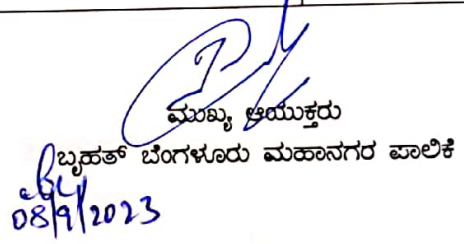 ಮುಖ್ಯ ಆಯುಕ್ತರು
ಬೃಹತ್ ಬೆಂಗಳೂರು ಮಹಾನಗರ ಪಾಲಿಕೆ
08/9/2023